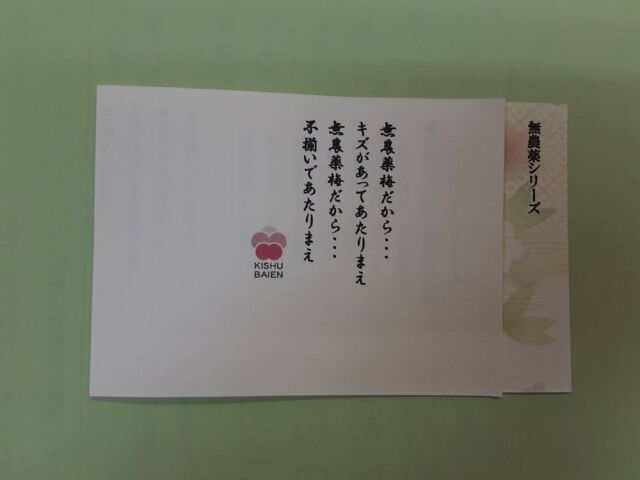 無農薬シリーズ
無農薬梅だから・・・
キズがあってあたりまえ
無農薬梅だから・・・
不揃いであたりまえ
KISHU
BAIEN